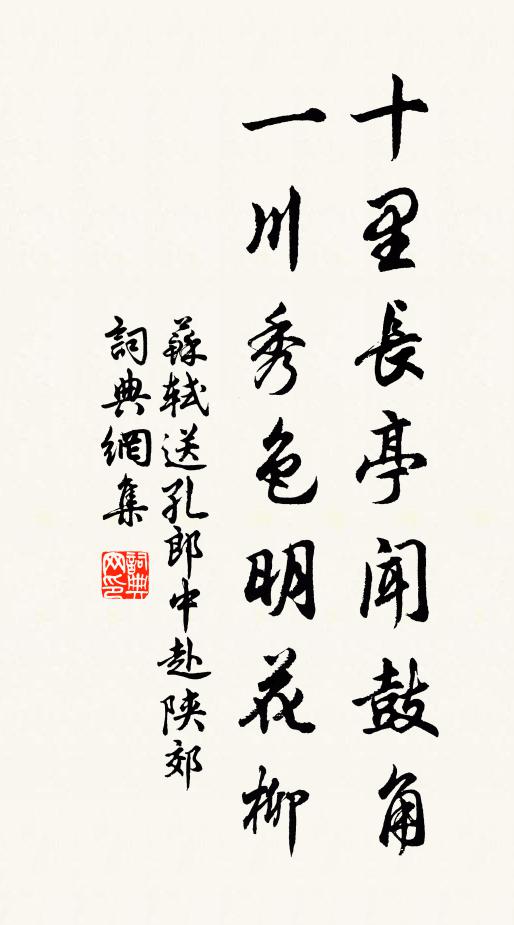 十里長亭聞鼓角
一川秀色明花柳
蘇軾送孔郎中赴陝郊
詞典網集
詞典网印